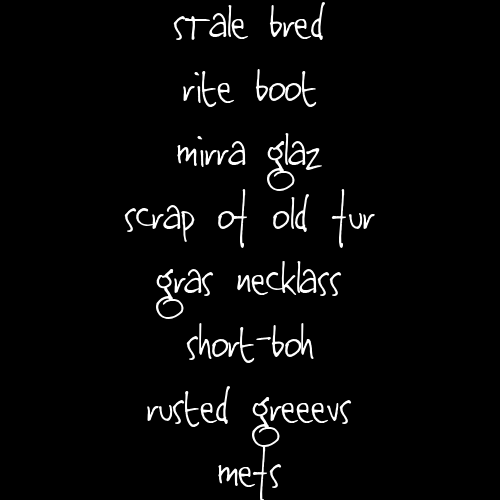 stale bred
rite boot
mirra glaz
scrap of old fur
gras necklass
short-boh
rusted greeevs
mefs